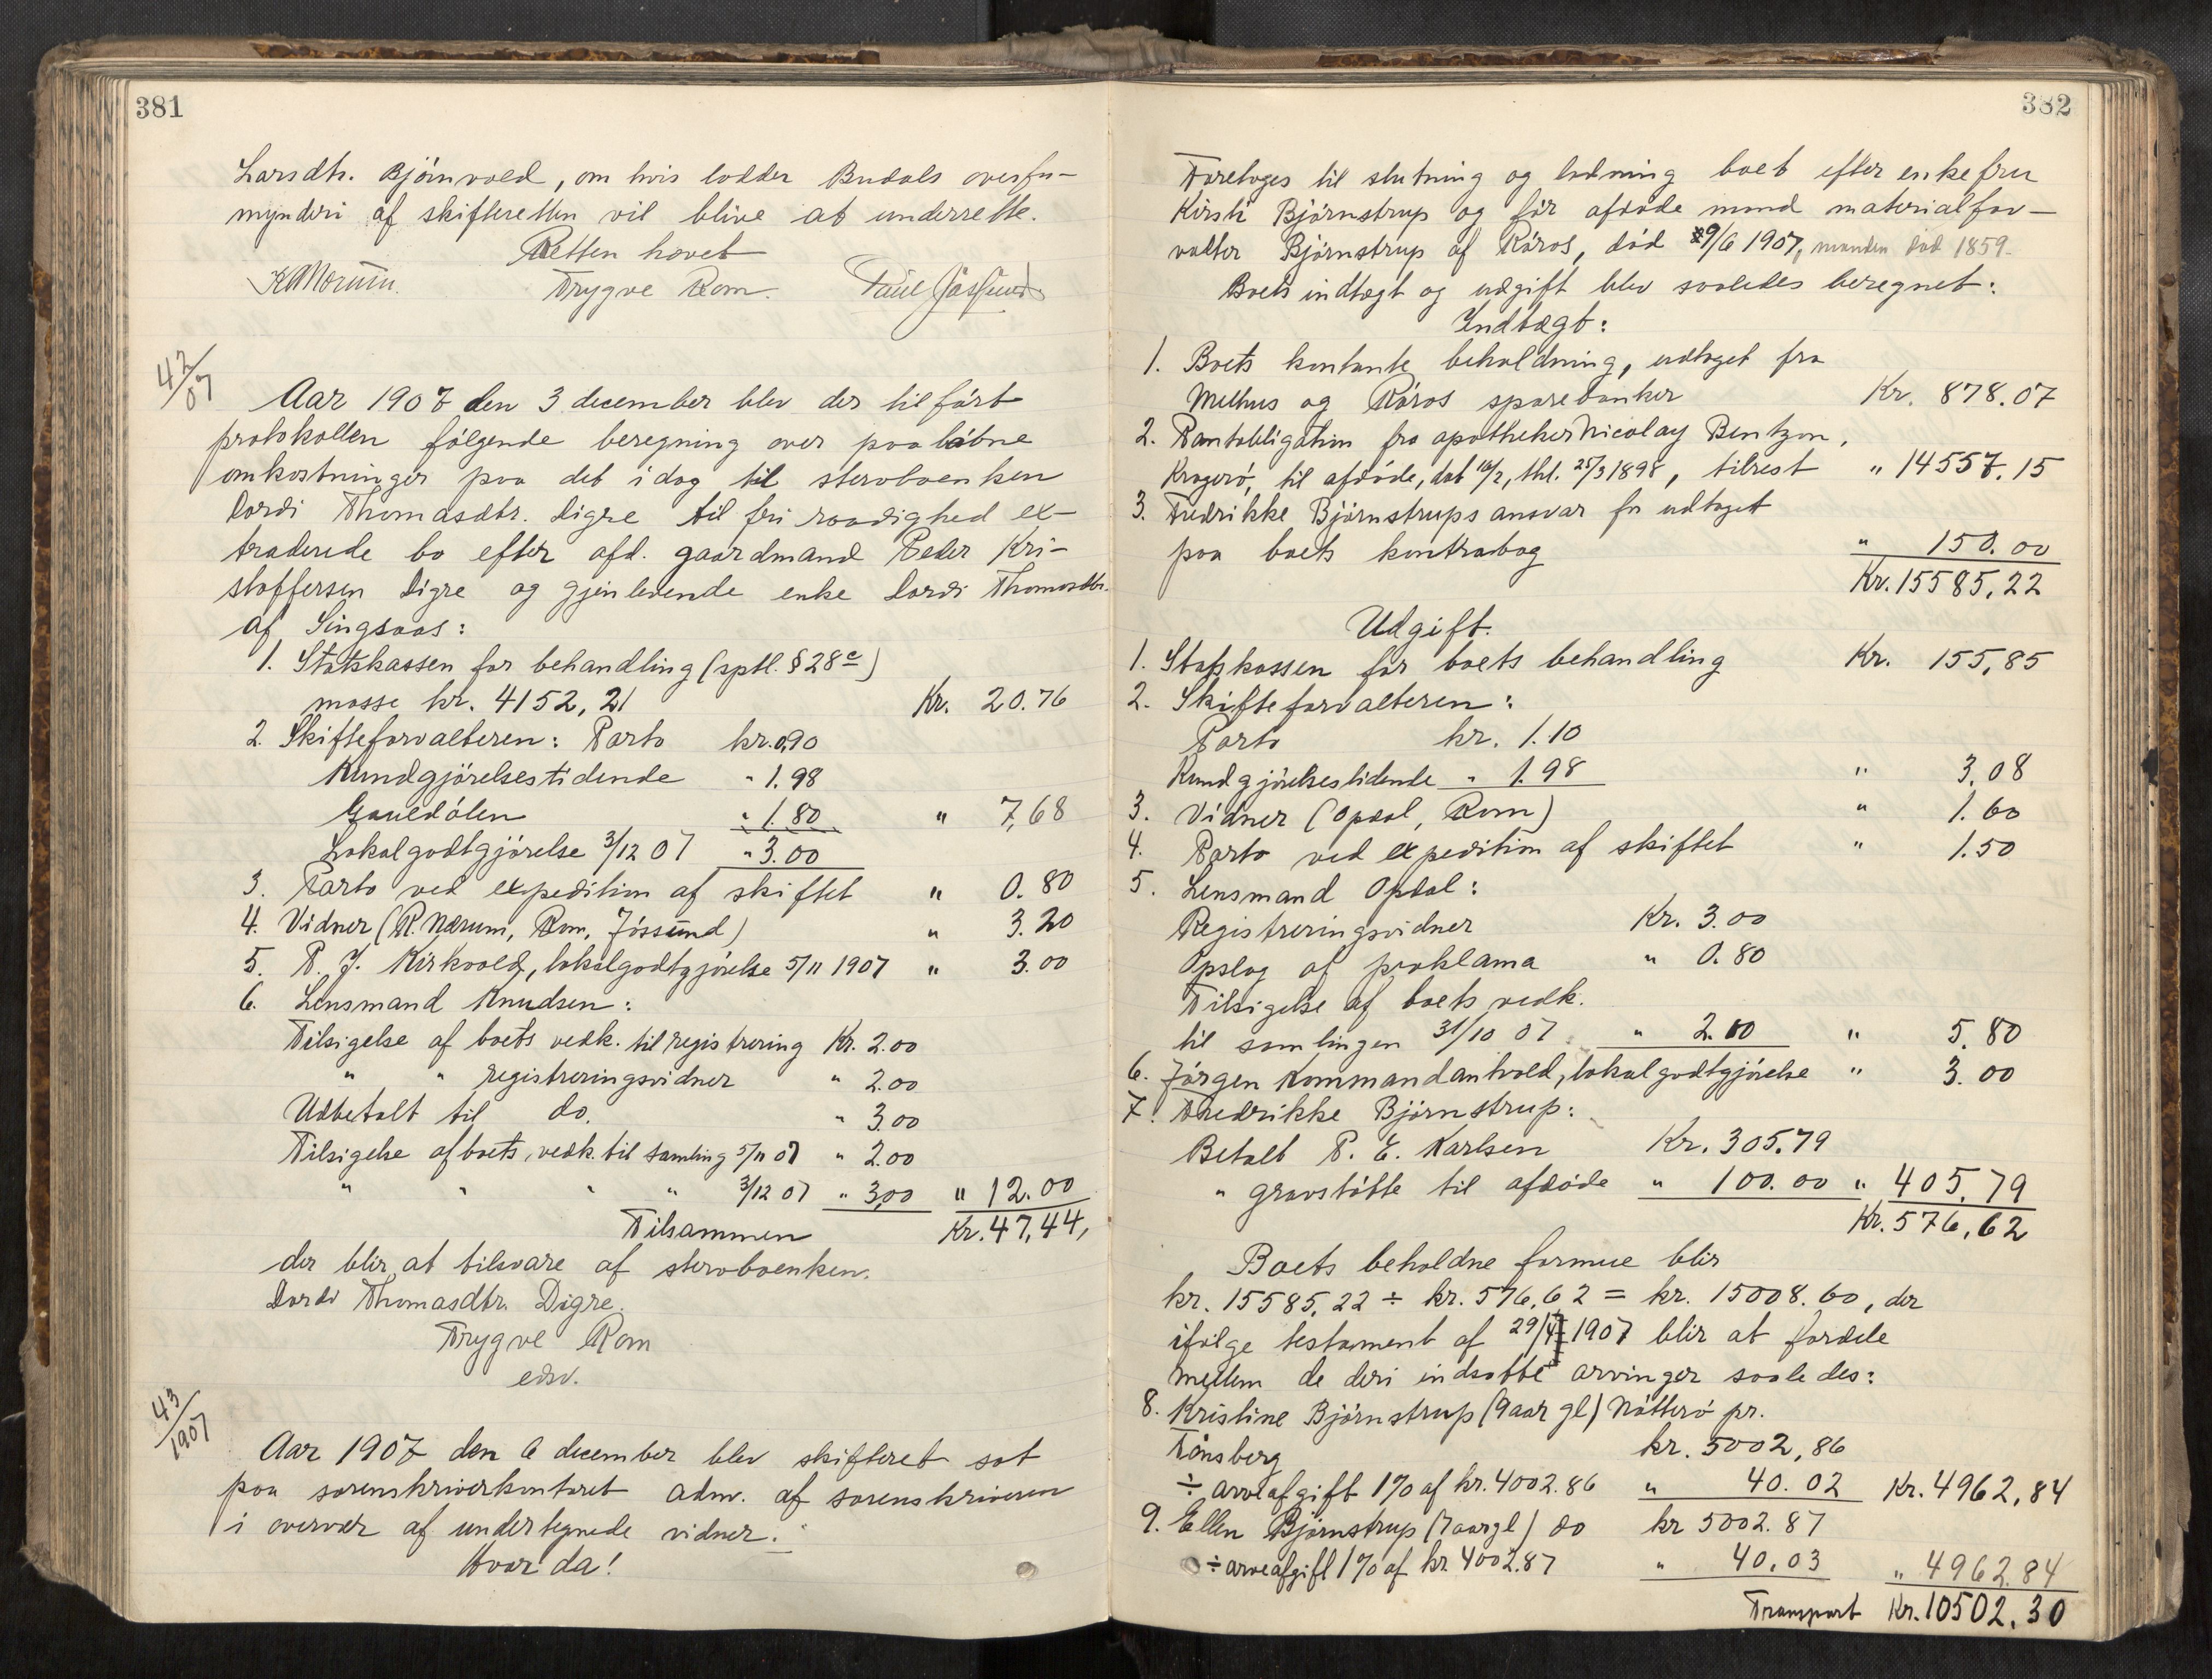 381
Larsdtr. Bjørnvold, om hvis lodder Budals overfor-
mynderi af skifteretten vil blive at underrette.
Retten hævet
Trygve Rom. Paul Jøssund
42/07
Aar 1907 den 3 december blev der tilført
protokollen følgende beregning over paaløbne
omkostninger paa det idag til stervboenken
Dordi Thomasdtr. Digre til fri raadighed ex-
traderede bo efter afd. gaardmand Peder Kri-
stoffersen Digre og gjenlevende enke Dordi Thomasdtr.
af Singsaas:
1. Statskassen for behandling (sptl. § 28 c)
masse kr. 4152,21 Kr. 20.76
2. Skifteforvalteren: Porto kr. 0,90
Kundgjørelsestidende " 1.98
Gauldølen " 1.80 " 7,68
Lokalgodtgjørelse 3/12 07 " 3.00
3. Porto ved expedition af skiftet " 0.80
4. Vidner (R. Nærum, Rom, Jøssund) " 3.20
5. P. J. Kirkvold, lokalgodtgjørelse 5/11 1907 " 3.00
6. Lensmand Knudsen:
Tilsigelse af boets vedk. til registrering Kr. 2.00
" " registreringsvidner " 2.00
Udbetalt til do. " 3.00
Tilsigelse af boets vedk. til samling 5/11 07 " 2.00
" " " " 3/12 07 " 3,00 " 12.00
Tilsammen Kr. 47,44,
der blir at tilsvare af stervboenken.
Dordi Thomasdtr. Digre.
Trygve Rom
edsv.
43/1907
Aar 1907 den 6 december blev skifteret sat
paa sorenskriverkontoret adm. af sorenskriveren
i overvær af undertegnede vidner.
Hvor da!
382
Foretoges til slutning og lodning boet efter enkefru
Kirsti Bjørnstrup og før afdøde mand materialfor-
valter Bjørnstrup af Røros, død 9/6 1907, manden død 1859.
Boets indtægt og udgift blev saaledes beregnet:
Indtægt:
1. Boets kontante beholdning, udtaget fra
Melhus og Røros sparebanker Kr. 878.07
2. Pantobligation fra apotheker Nicolay Bentzon,
Kragerø, til afdøde, dat 16/2, thl. 25/3 1898, tilrest " 14557.15
3. Fredrikke Bjørnstrups ansvar for udtaget
paa boets kontrabog " 150.00
Kr. 15585,22
Udgift.
1. Statskassen for boets behandling Kr. 155,85
2. Skifteforvalteren:
Porto kr. 1.10
Kundgjørelsestidende " 1.98 " 3.08
3. Vidner (Opdal, Rom) " 1.60
4. Porto ved expedition af skiftet " 1.50
5. Lensmand Opdal:
Registreringsvidner Kr. 3.00
Opslag af proklama " 0.80
Tilsigelse af boets vedk.
til samlingen 31/10 07 " 2.00 " 5.80
6. Jørgen Kommandantvold, lokalgodtgjørelse " 3.00
7. Fredrikke Bjørnstrup:
Betalt P. E. Karlsen Kr. 305.79
" gravstøtte til afdøde " 100.00 " 405.79
Kr. 576,62
Boets beholdne formue blir
kr. 15585,22 ÷ kr. 576,62 = kr. 15008.60, der
ifølge testament af 29/4 1907 blir at fordele
mellem de deri indsatte arvinger saaledes:
8. Kristine Bjørnstrup (9 aar gl) Nøtterø pr.
Tønsberg kr. 5002,86
÷ arveafgift 1% af kr. 4002.86 " 40.02 Kr. 4962,84
9. Ellen Bjørnstrup (7 aar gl) do kr 5002.87
÷ arveafgift 1% af kr. 4002.87 " 40.03 " 4962.84
Transport Kr. 10502.30